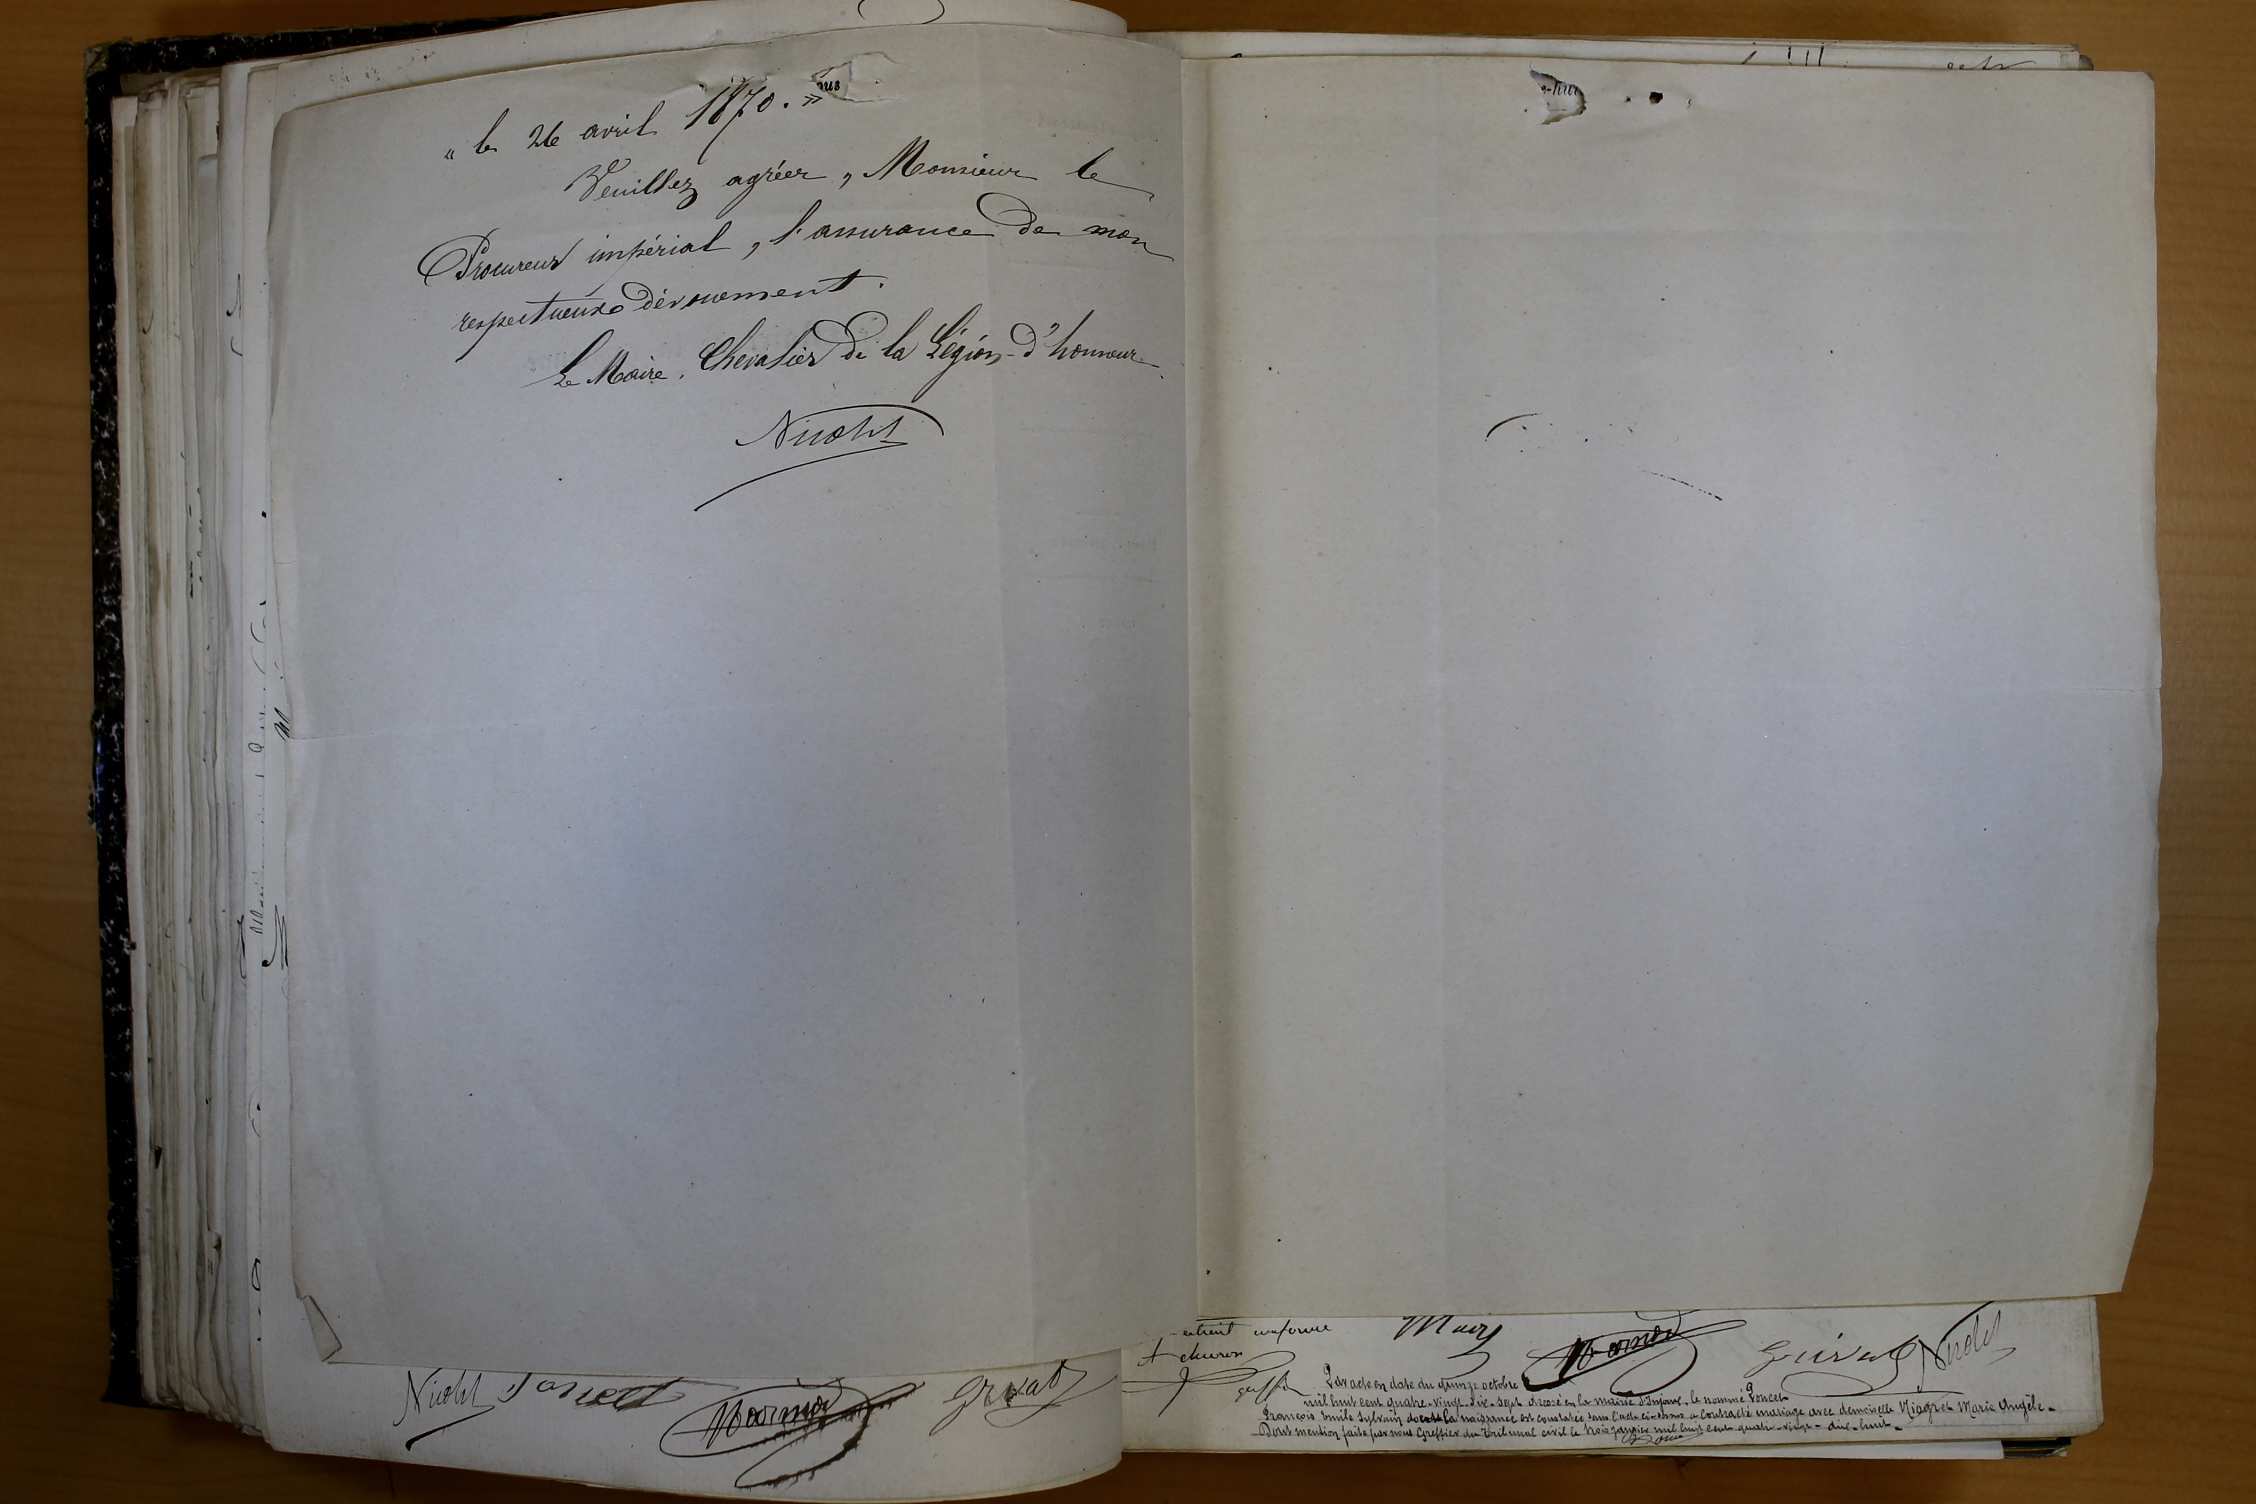 « le 26 avril 1870. »
Veuillez agréer, Monsieur le
Procureur impérial, l'assurance de mon
respectueux dévouement.
Le Maire, Chevalier de la Légion-d'honneur.
Nicolet
Nicolet Poncet
extrait conforme
Par acte en date du quinze octobre
mil huit cent quatre-vingt-dix-sept dressé en la mairie d' le nommé Poncet
François Emile Sylvain dont la naissance est constatée dans l'acte ci-dessus a contracté mariage avec demoiselle Niagret Marie Angèle.
Dont mention faite par nous Greffier du Tribunal civil le trois janvier mil huit cent quatre-vingt-dix-huit.
Nicolet